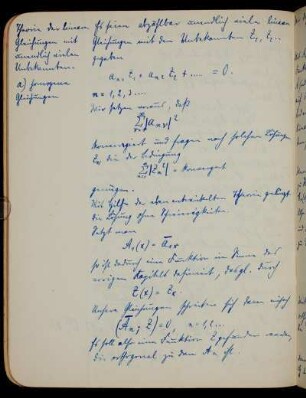 Theorie der linearen
Gleichungen mit
unendlich vielen
Unbekannten.
a) homogene
Gleichungen
Es seien abzählbar unendlich viele lineare
Gleichungen mit den Unbekannten Z₁, Z₂, ...
gegeben
aₙ₁ Z₁ + aₙ₂ Z₂ + .... = 0.
n = 1, 2, 3....
Wir setzen voraus, daß
∑|aₙᵥ|²
konvergiert und fragen nach solchen Lösungen
Zᵥ die der Bedingung
∑|Zᵥ|² = konvergent
genügen.
Mit Hilfe der eben entwickelten Theorie gelingt
die Lösung ohne Schwierigkeiten.
Setzt man
Aₙ(x) = āₙᵥ
so ist dadurch eine Funktion im Sinne des
vorigen definiert, desgl. durch
Z(x) = Zᵥ
Unsere Gleichungen schreiben sich dann einfach
(Aₙ; Z) = 0, n = 1, 2...
Es soll also eine Funktion Z gefunden werden,
die orthogonal zu den Aₙ ist.